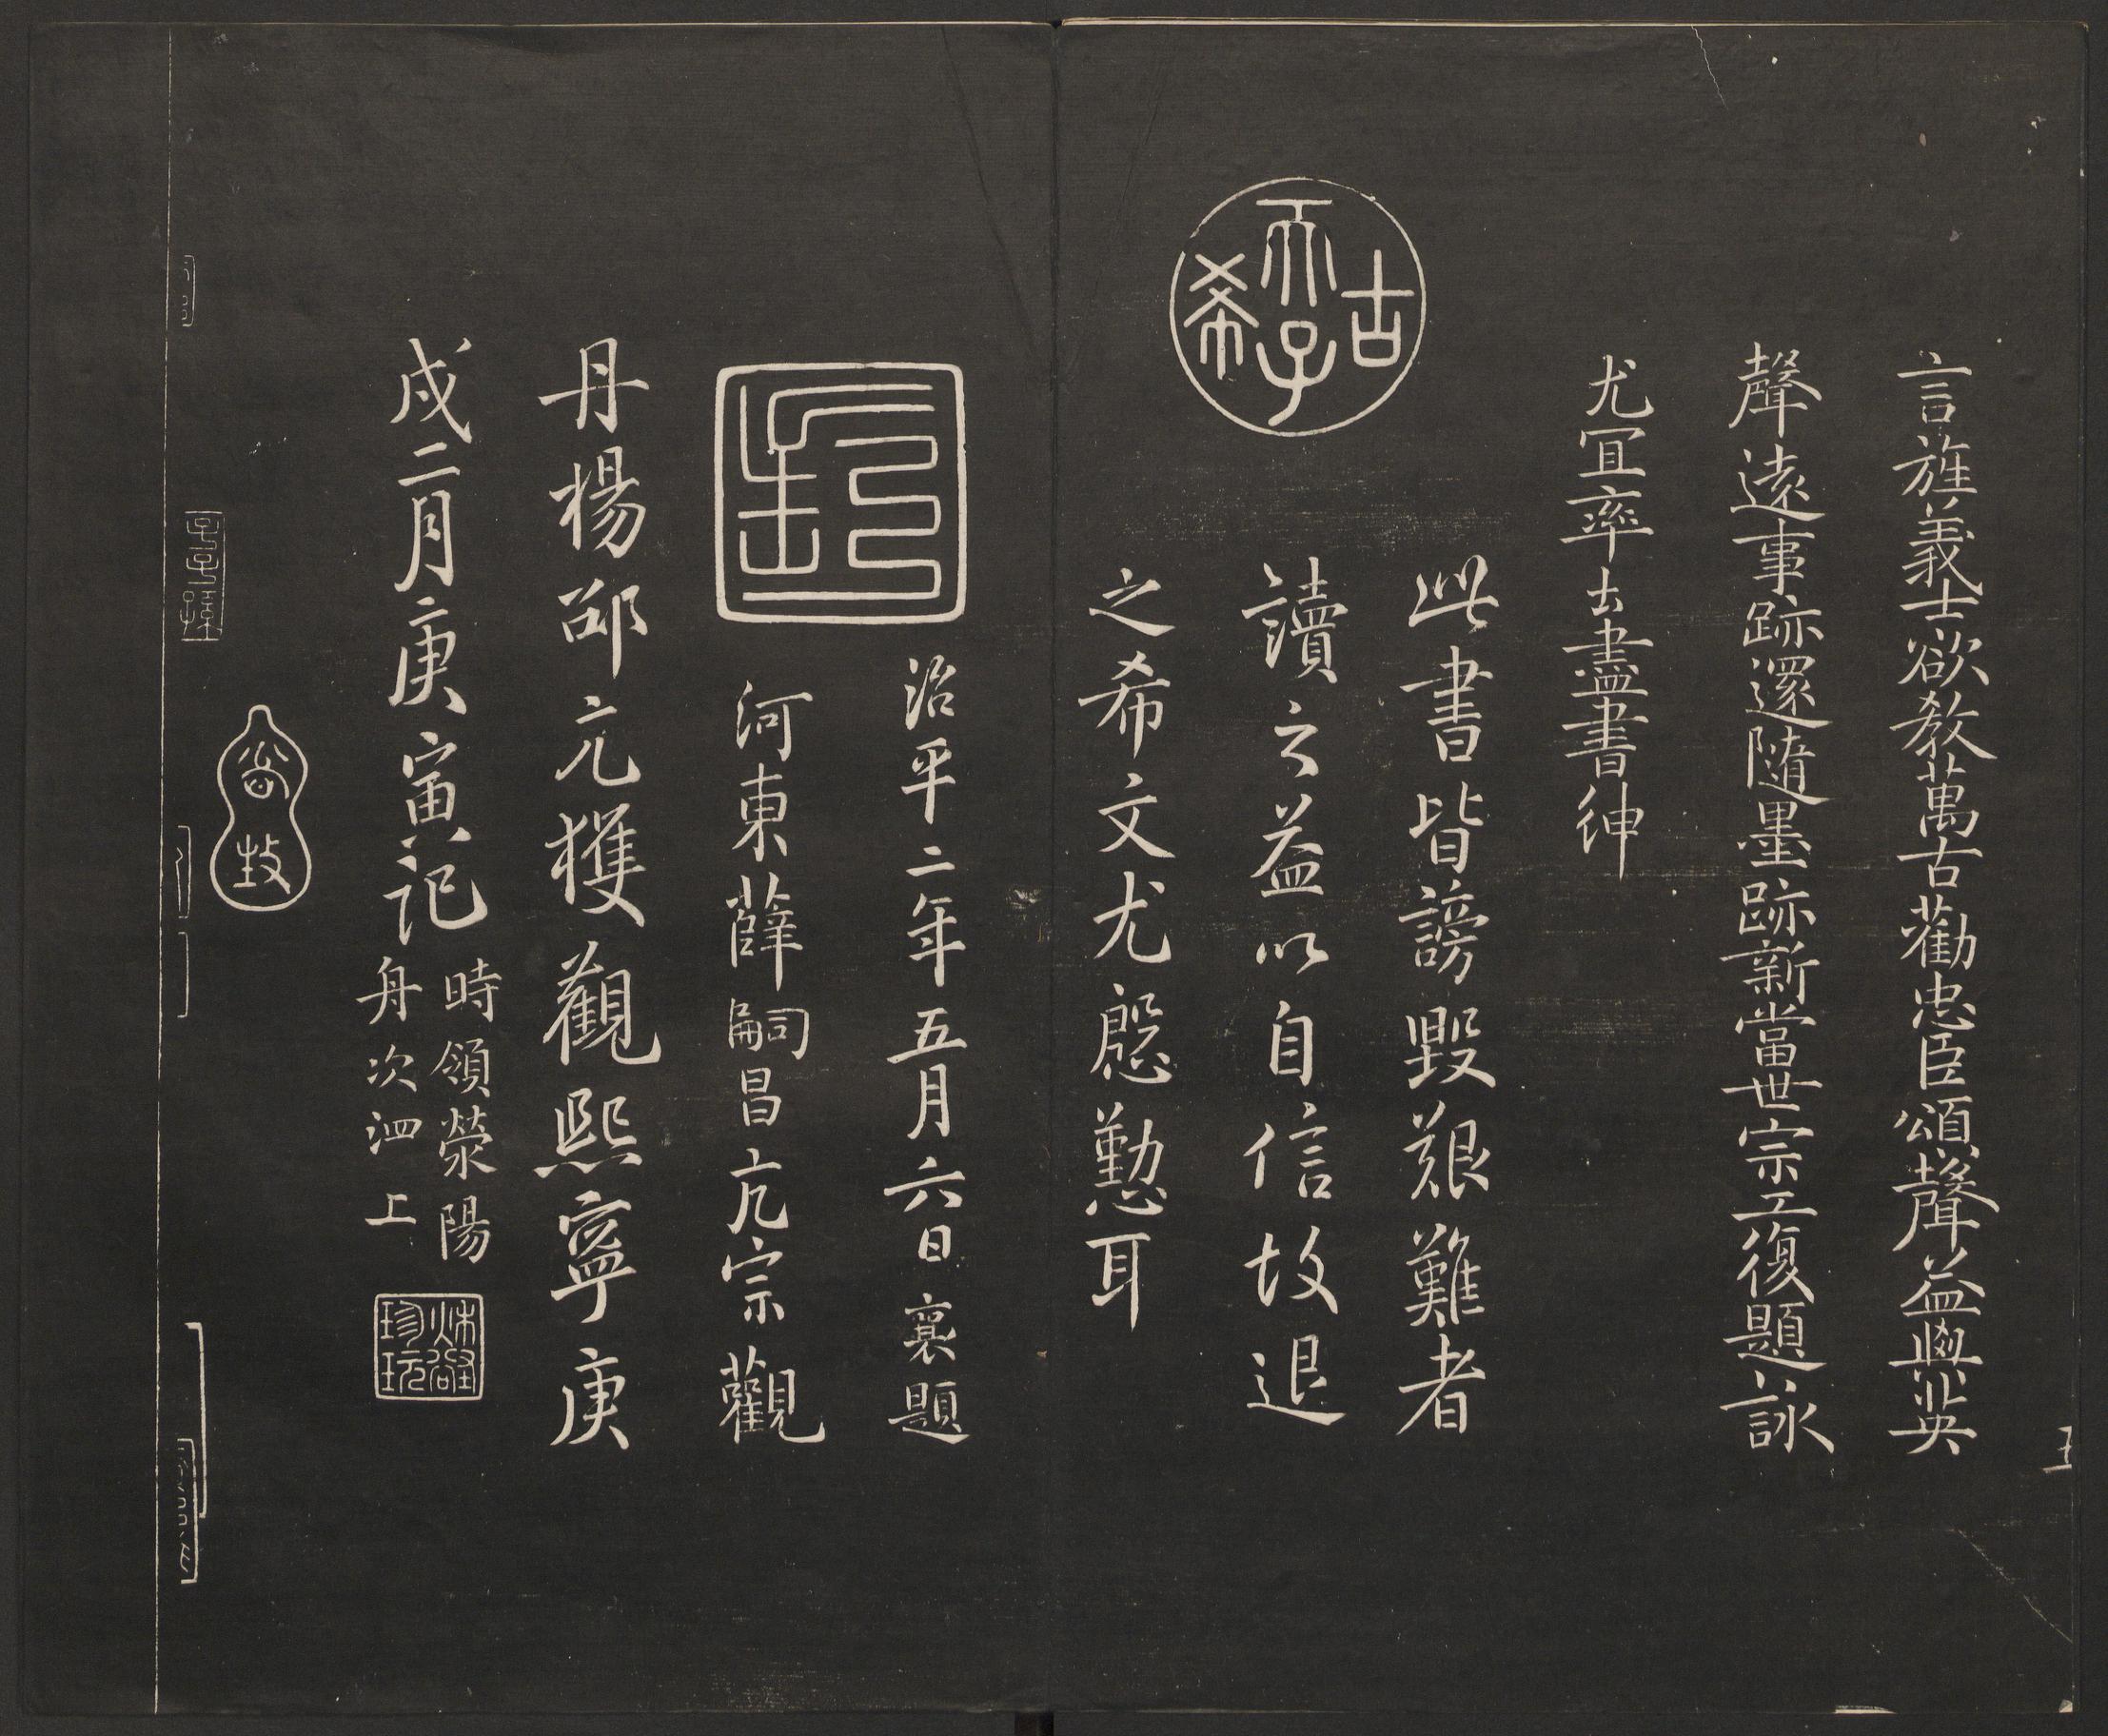 言旌義士欲教萬古勸忠臣頌聲益與英
聲遠事跡還隨墨跡新當世宗工復題詠
尤宜率土盡書紳
古希天子
此書皆謗毀艱難者
讀之益以自信故退
之希文尤慇懃耳
治平二年五月六日襄題
河東薛嗣昌亢宗觀
丹楊邵元擭觀熙寧庚
戌二月庚寅記
時領滎陽
舟次泗上
珍玩
子子孫